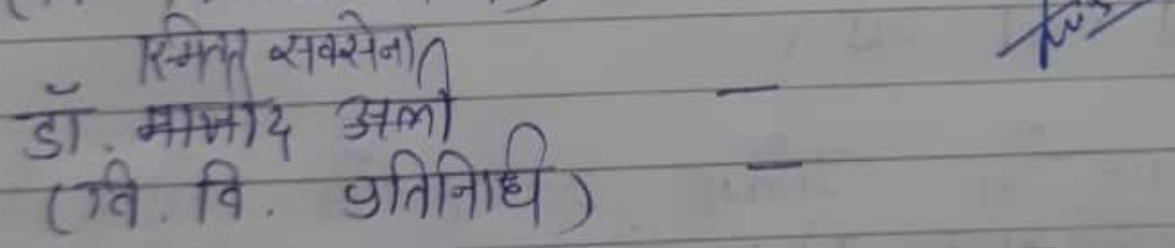 स्मिता सक्सेना
डॉ. माजीद अली –
(वि. वि. प्रतिनिधि) –